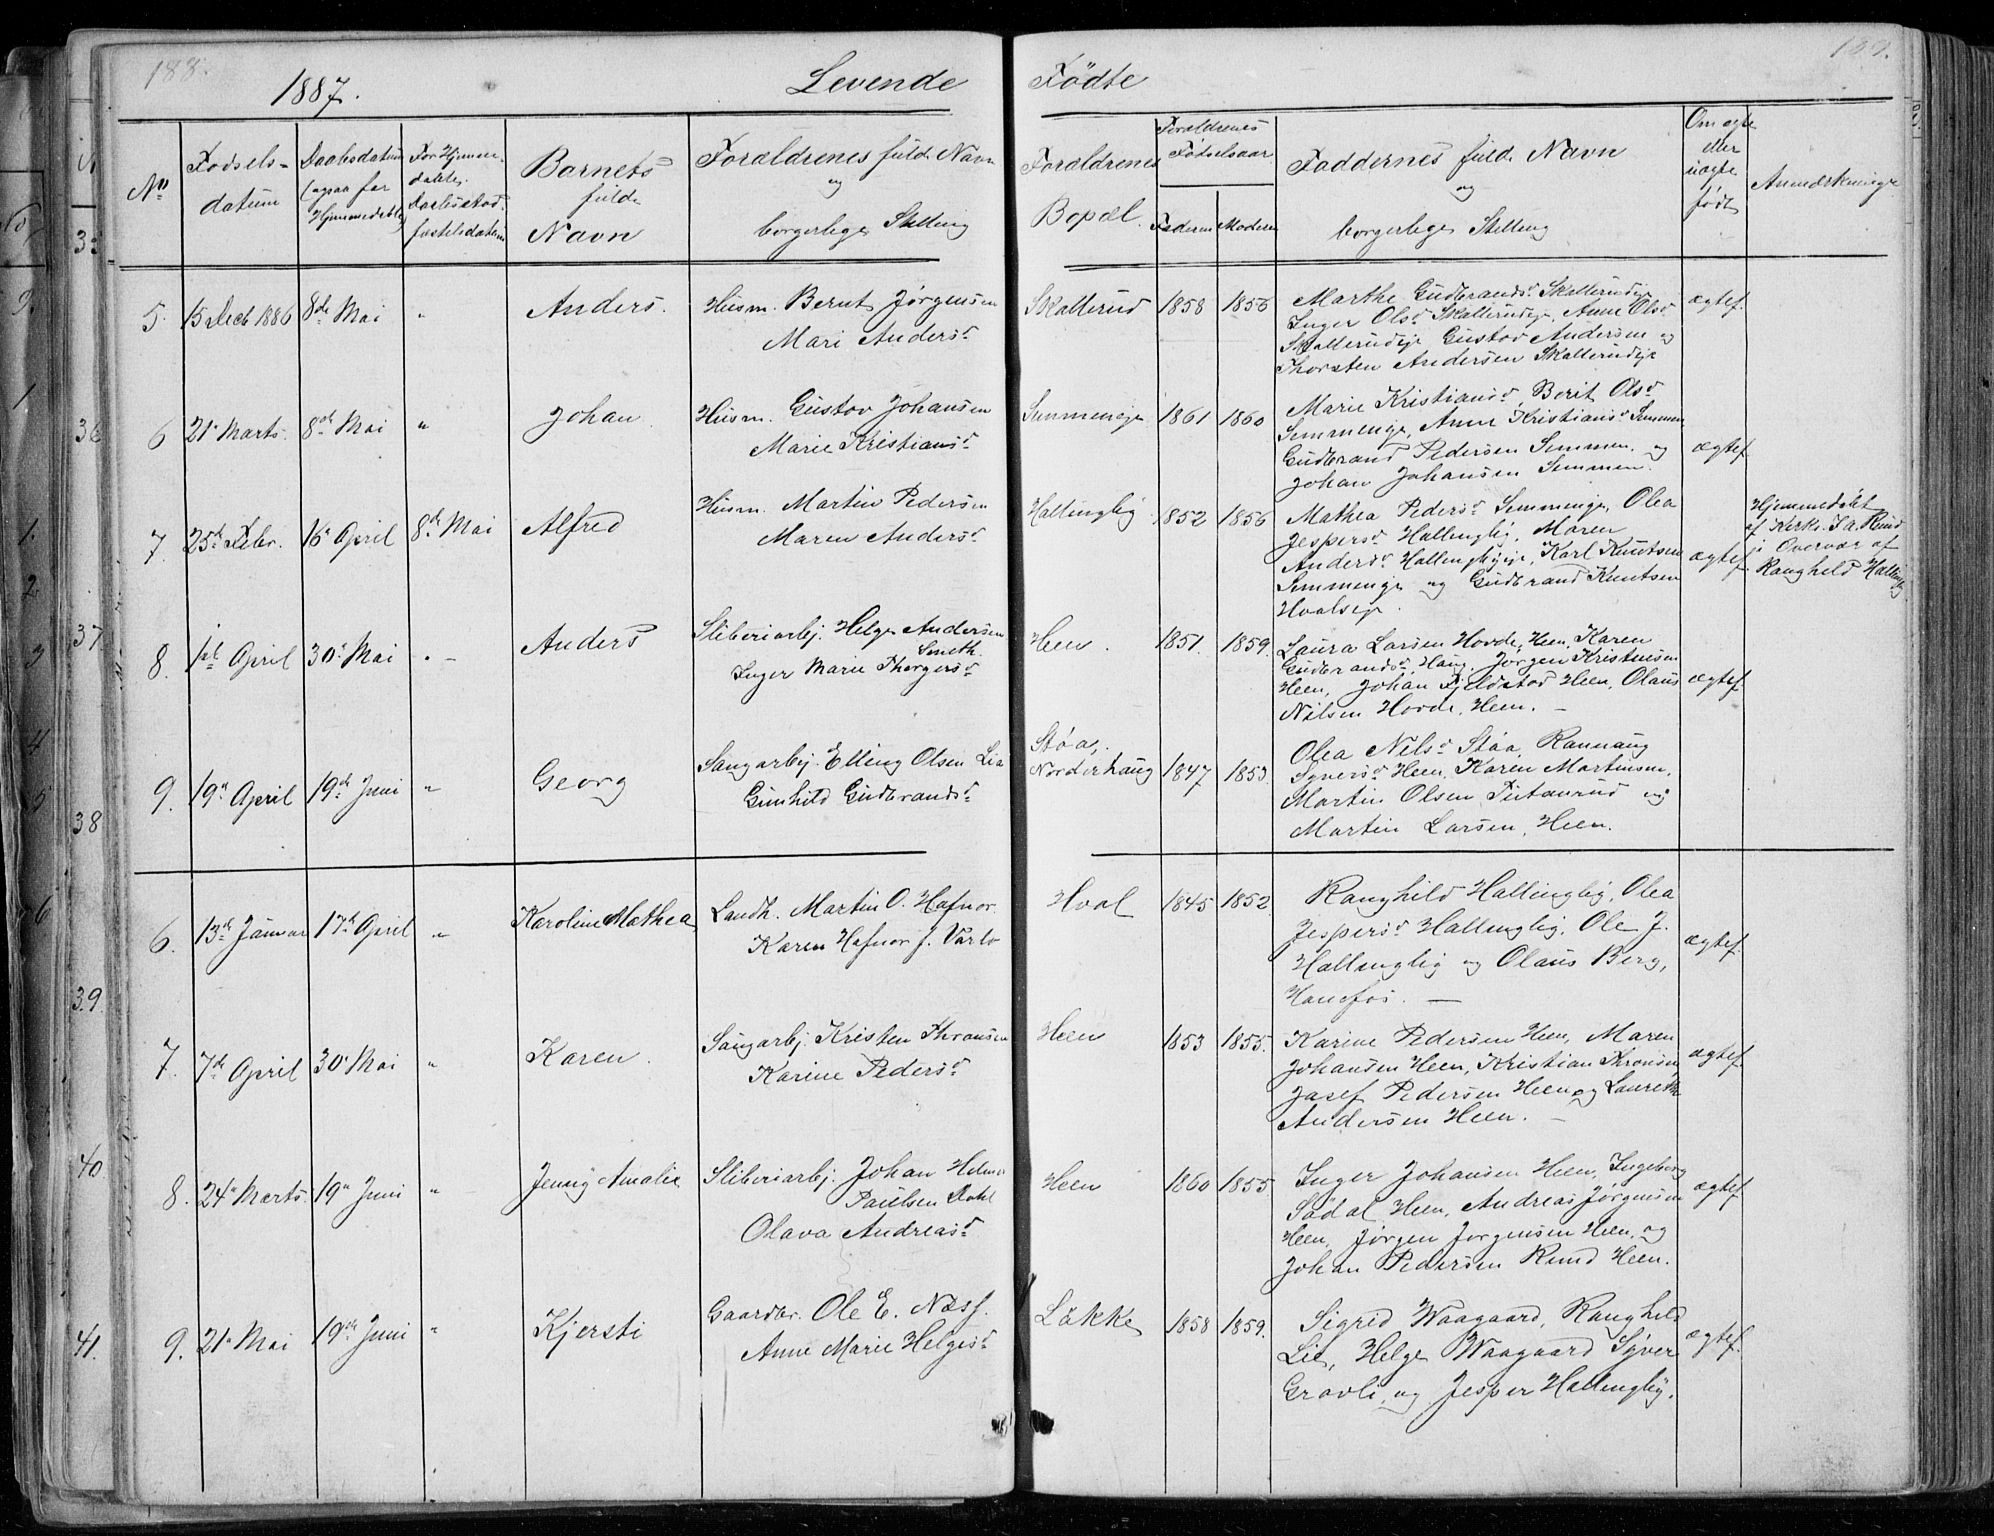 188.
1887.
Levende
Fødte
No
Fødsels-
datum
Daabsdatum
(ogsaa for
Hjemmedøbte)
For Hjemme-
døbte,
Daabsstad-
fæstelsdatum
Barnets
fulde
Navn
Forældrenes fulde Navn
og
borgerlige Stilling
Forældrenes
Bopæl.
Forældrenes
Fødselsaar
Faderen
Moderen
Faddernes fulde Navn
og
borgerlige Stilling
Om ægte
eller
uægte
født
Anmærkninger
5.
15 Decb 1886
8de Mai
"
Anders.
Husm. Bernt Jørgensen
Mari Andersd
Skallerud
1858
1856
Marthe Gudbrandsd Skallerudeje
Inger Olsd Skallerudeje, Anne Olsd
Skallerudeje Gustav Andersen og
Thorsten Andersen Skallerudeje
ægtef.
6
21 Marts.
8de Mai
"
Johan
Husm. Gustav Johansen
Marie Kristiansd
Semmeneje
1861
1860
Marie Kristiansd, Berit Olsd
Semmenge, Anne Kristiansd Semmen
Gudbrand Pedersen Semmen. og
Johan Johansen Semmen.
ægtef.
7.
25de Febr.
16 April
8de Mai
Alfred
Husm. Martin Pedersen
Maren Andersd
Hallingby
1852
1856
Mathea Pedersd Semmenge, Olea
Jespersd Hallingby, Maren
Andersd Hallingbyeje, Karl Knutsen
Semmenge og Gudbrand Knutsen
Hvalseje.
ægtef.
Hjemmedøbt
af Kirks. J. A. Rund
i Overvær af
Ranghild Hallingby
8.
1ste April
30 Mai
"
Anders
Sliberiarbj. Helge Andersen
Smeth.
Inger Marie Thorgersd
Heen.
1851.
1859.
Laura Larsen Hovde, Heen, Karen
Gudbrandsd Haug. Jørgen Kristensen
Heen, Johan Fjeldstad Heen, Olaus
Nilsen Hovde, Heen.
ægtef.
9.
19 April
19de Juni
"
Georg
Saugarbj. Elling Olsen Lia
Gunhild Gudbrandsd
Støa,
Norderhaug
1847
1853
Olea Nelsd Støa, Rannaug
Syversd Heen, Karen Martinsen,
Martin Olsen Tutanrud og
Martin Larsen, Heen.
6.
13de Januar
17de April
"
Karoline Mathea
Landh. Martin O. Hafnor.
Karen Hafnor f. Varlo
Hval
1845
1852
Ranghild Hallingby, Olea
Jespersd Hallingby, Ole J.
Hallingby og Olaus Berg,
Hønefos.
ægtef.
7.
7de April
30 Mai
"
Karen.
Saugarbj. Kristen Thronsen
Karine Pedersd
Heen
1853
1855.
Karine Pedersen Heen, Maren
Johansen Heen, Kristian Thronsen
Josef Pedersen Heen og Laureth
Andersen Heen.
ægtef.
8.
24 Marts.
19 Juni
"
Jenny Amalie
Sliberiarbj. Johan Helmer
Paulsen Dahl
Olava Andreasd
Heen
1860
1855
Inger Johansen Heen, Ingeborg
Sødal Heen, Andreas Jørgensen
Heen, Jørgen Jørgensen Heen, og
Johan Pedersen Rund Heen.
ægtef.
9.
21 Mai
19de Juni
"
Kjersti
Gaardbr. Ole E. Næss.
Anne Marie Helgesd
Løkke
1858
1859.
Sigrid Waagaard, Ranghild
Lie, Helge Waagaard Syver
Gravli, og Jesper Hallingby.
ægtef.
36
37
38
39
40
41.